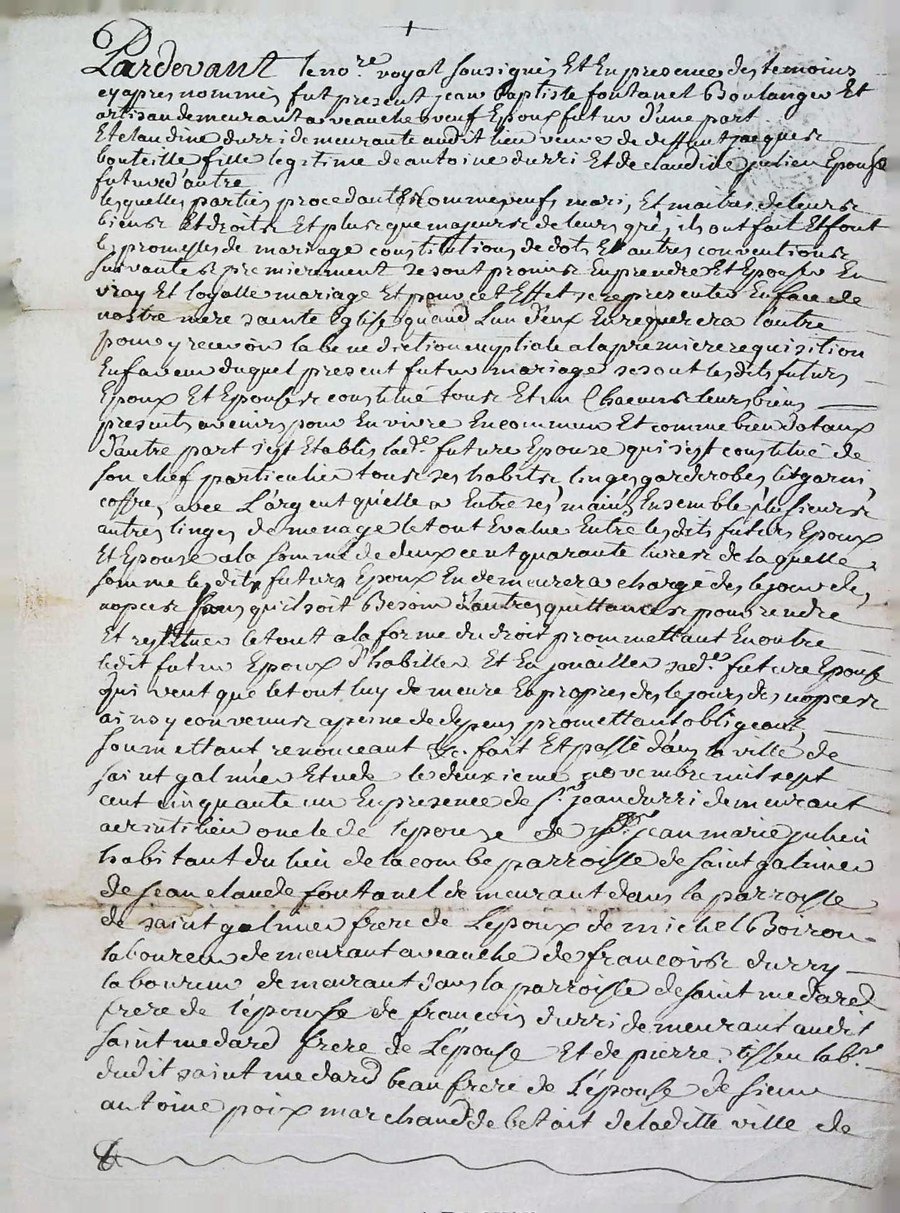 Pardevant le no.re royal sousignés Et En presence des temoins
cy apres nommés fut present jean Baptiste fontanel Boulanger Et
artisan demeurant a veauche veuf Epoux futur d'une part
Et claudine durri demeurante audit lieu veuve de deffunt jacques
bouteille fille legitime de antoine durri Et de claudine julien Epouse
future d'autre
lesquelles parties procedantes comme veufs mari, Et maitres de leurs
biens Et droits Et plus que majeurs de leurs grés ils ont fait Et font
les promesses de mariage constitutions de dots Et autres conventions
suivantes premierement se sont promis En prendre Et Epouser En
vray Et loyalle mariage Et pour cet Effet se representer En face de
nostre mere sainte Eglise quand l'un d'eux En requerera l'autre
pour y recevoir la benediction nuptiale a la premiere requisition
En faveur duquel present futur mariage se sont lesdits futurs
Epoux Et Epouse constitué tous Et un Chacuns leurs biens
presents avenirs pour En vivre En commun Et comme bien dotaux
d'autre part s'est Etablie lad.e future Epouse qui s'est constitué de
son chef particulier tous ses habits, linges garderobes, lit garni,
coffre, avec L'argent qu'elle a Entre ses mains Ensemble plusieurs
autres linges de menage le tout Evalué Entre lesdits futurs Epoux
Et Epouse a la somme de deux cent quarante livres de laquelle
somme lesdits futurs Epoux En demeurera chargé des le jour des
nopces sans qu'il soit Besoin d'autres quittances pour rendre
Et restituer le tout a la forme du droit promettant En outre
ledit futur Epoux d'habiller Et En jouailler sad.e future Epouse
qui veut que le tout luy demeure En propres des le jours des nopces
ainsy convenus a peine de depens promettant obligeant,
soumettant renonceant &c. fait Et passé dans la ville de
saint galmier Etude le deuxieme novembre mil sept
cent cinquante un En presence de Sr. jean durri demeurant
lieu oncle de lepouse de jean marie julien
habitant du lieu de la combe parroisse de saint galmier
de jean claude fontanel demeurant dans la parroisse
de saint galmier frere de L'epoux de michel Boiron
laboureur demeurant a veauche de francois durry
laboureur demeurant dans la parroisse de saint medard
frere de l'épouse de francois durri demeurant audit
saint medard frere de L'épouse Et de pierre lab.r
dudit saint medard beaufrere de L'épouse de sieur
antoine poix marchand de betait de laditte ville de